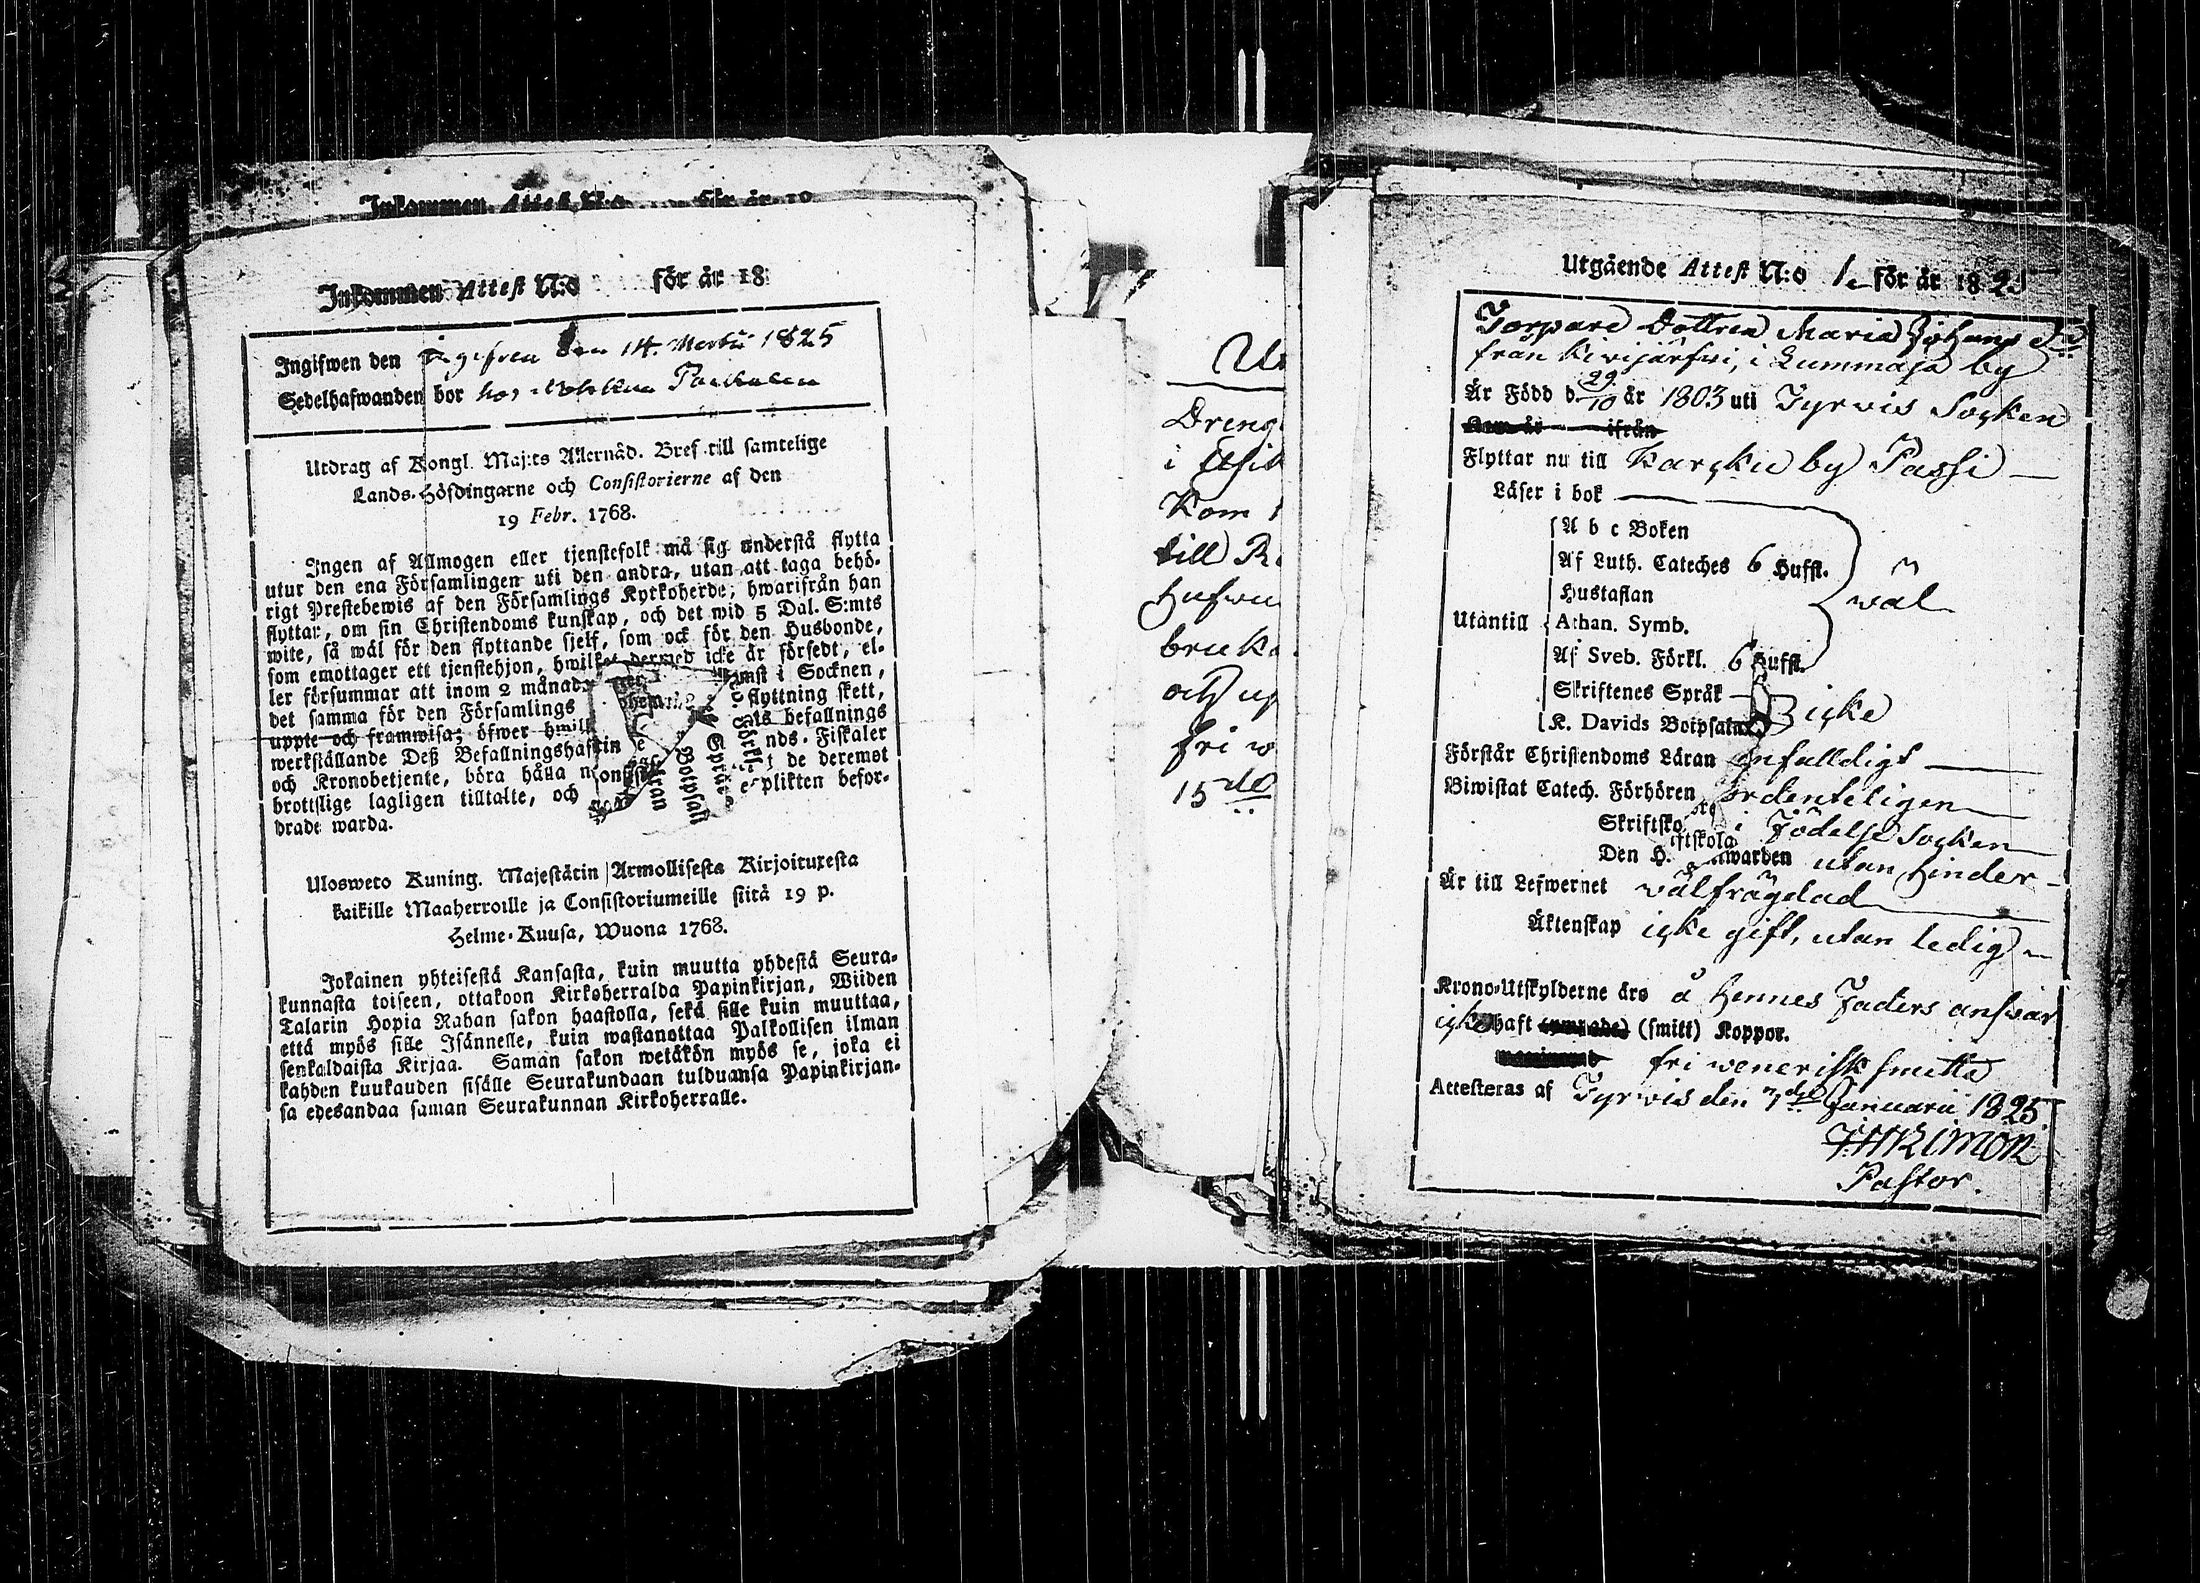 Inkommen Attest N:o för år 18
Inkommen Attest N:o för år 18
Ingifwen den den 14. Martii 1825
Sedelhafwanden bor hos
Utdrag af Kongl. Maj:ts Allernåd. Bref till samtelige
Lands-Höfdingarne och Consistorierne af den
19 Febr. 1768.
Ingen af Allmogen eller tjenstefolk må sig understå flytta
utur den ena Församlingen uti den andra, utan att taga behö-
rigt Prestebewis af den Församlings Kyrkoherde, hwarifrån han
flyttar, om sin Christendoms kunskap, och det wid 5 Dal. S:mts
wite, så wäl för den flyttande sjelf, som ock för den Husbonde,
som emottager ett tjenstehjon, hwilket dermed icke är försedt, el-
ler försummar att inom 2 månad i Socknen,
det samma för den Församlings flyttning skett,
uppte och framwisa; öfwer hwilk befallnings
werkställande Deß Befallningshafwin nds. Fiskaler
och Kronobetjente, böra hålla n de deremot
brottslige lagligen tilltalte, och plikten befor-
drade warda.
Ulosweto Kuning. Majestätin Armollisesta Kirjoituxesta
kaikille Maaherroille ja Consistoriumeille siitä 19 p.
Helme-Kuusa, Wuona 1768.
Jokainen yhteisestä Kansasta, kuin muutta yhdestä Seura-
kunnasta toiseen, ottakoon Kirkoherralda Papinkirjan, Wiiden
Talarin Hopia Rahan sakon haastolla, sekä sille kuin muuttaa,
että myös sille Isännelle, kuin wastanottaa Palkollisen ilman
senkaldaista Kirjaa. Saman sakon wetäkön myös se, joka ei
kahden kuukauden sisälle Seurakundaan tulduansa Papinkirjan-
sa edesandaa saman Seurakunnan Kirkoherralle.
Dreng
i
Kom
till
bruk
och up
fri w
15de
Utgående Attest N:o 1. för år 1825
Torpare Dottren Maria Johans Dr
från Kivijärfvi, i Lummaja by
Är Född d. 29/10 år 1803 uti Tyrvis Socken
Kom år ifrån
Flyttar nu till Karcku by Passi
Läser i bok
A b c Boken
Af Luth. Cateches 6 Huffst.
Hustaflan wäl
Utantill Athan. Symb.
Af Sveb. Förkl. 6 Huffst.
Skriftenes Språk
K. Davids Botpsalm icke
Förstår Christendoms Läran enfalldigt
Biwistat Catech. Förhören ordenteligen
Skriftsko i Födelse Socken
Den H. Nattwarden utan hinder
Är till Lefwernet wälfrägdad
Äktenskap icke gift, utan ledig
Krono-Utskylderne äro å hennes Faders answar
icke haft (ympade) (smitt) Koppor.
fri venerisk smitta
Attesteras af Tyrvis den 7de Januarii 1825
Pastor.